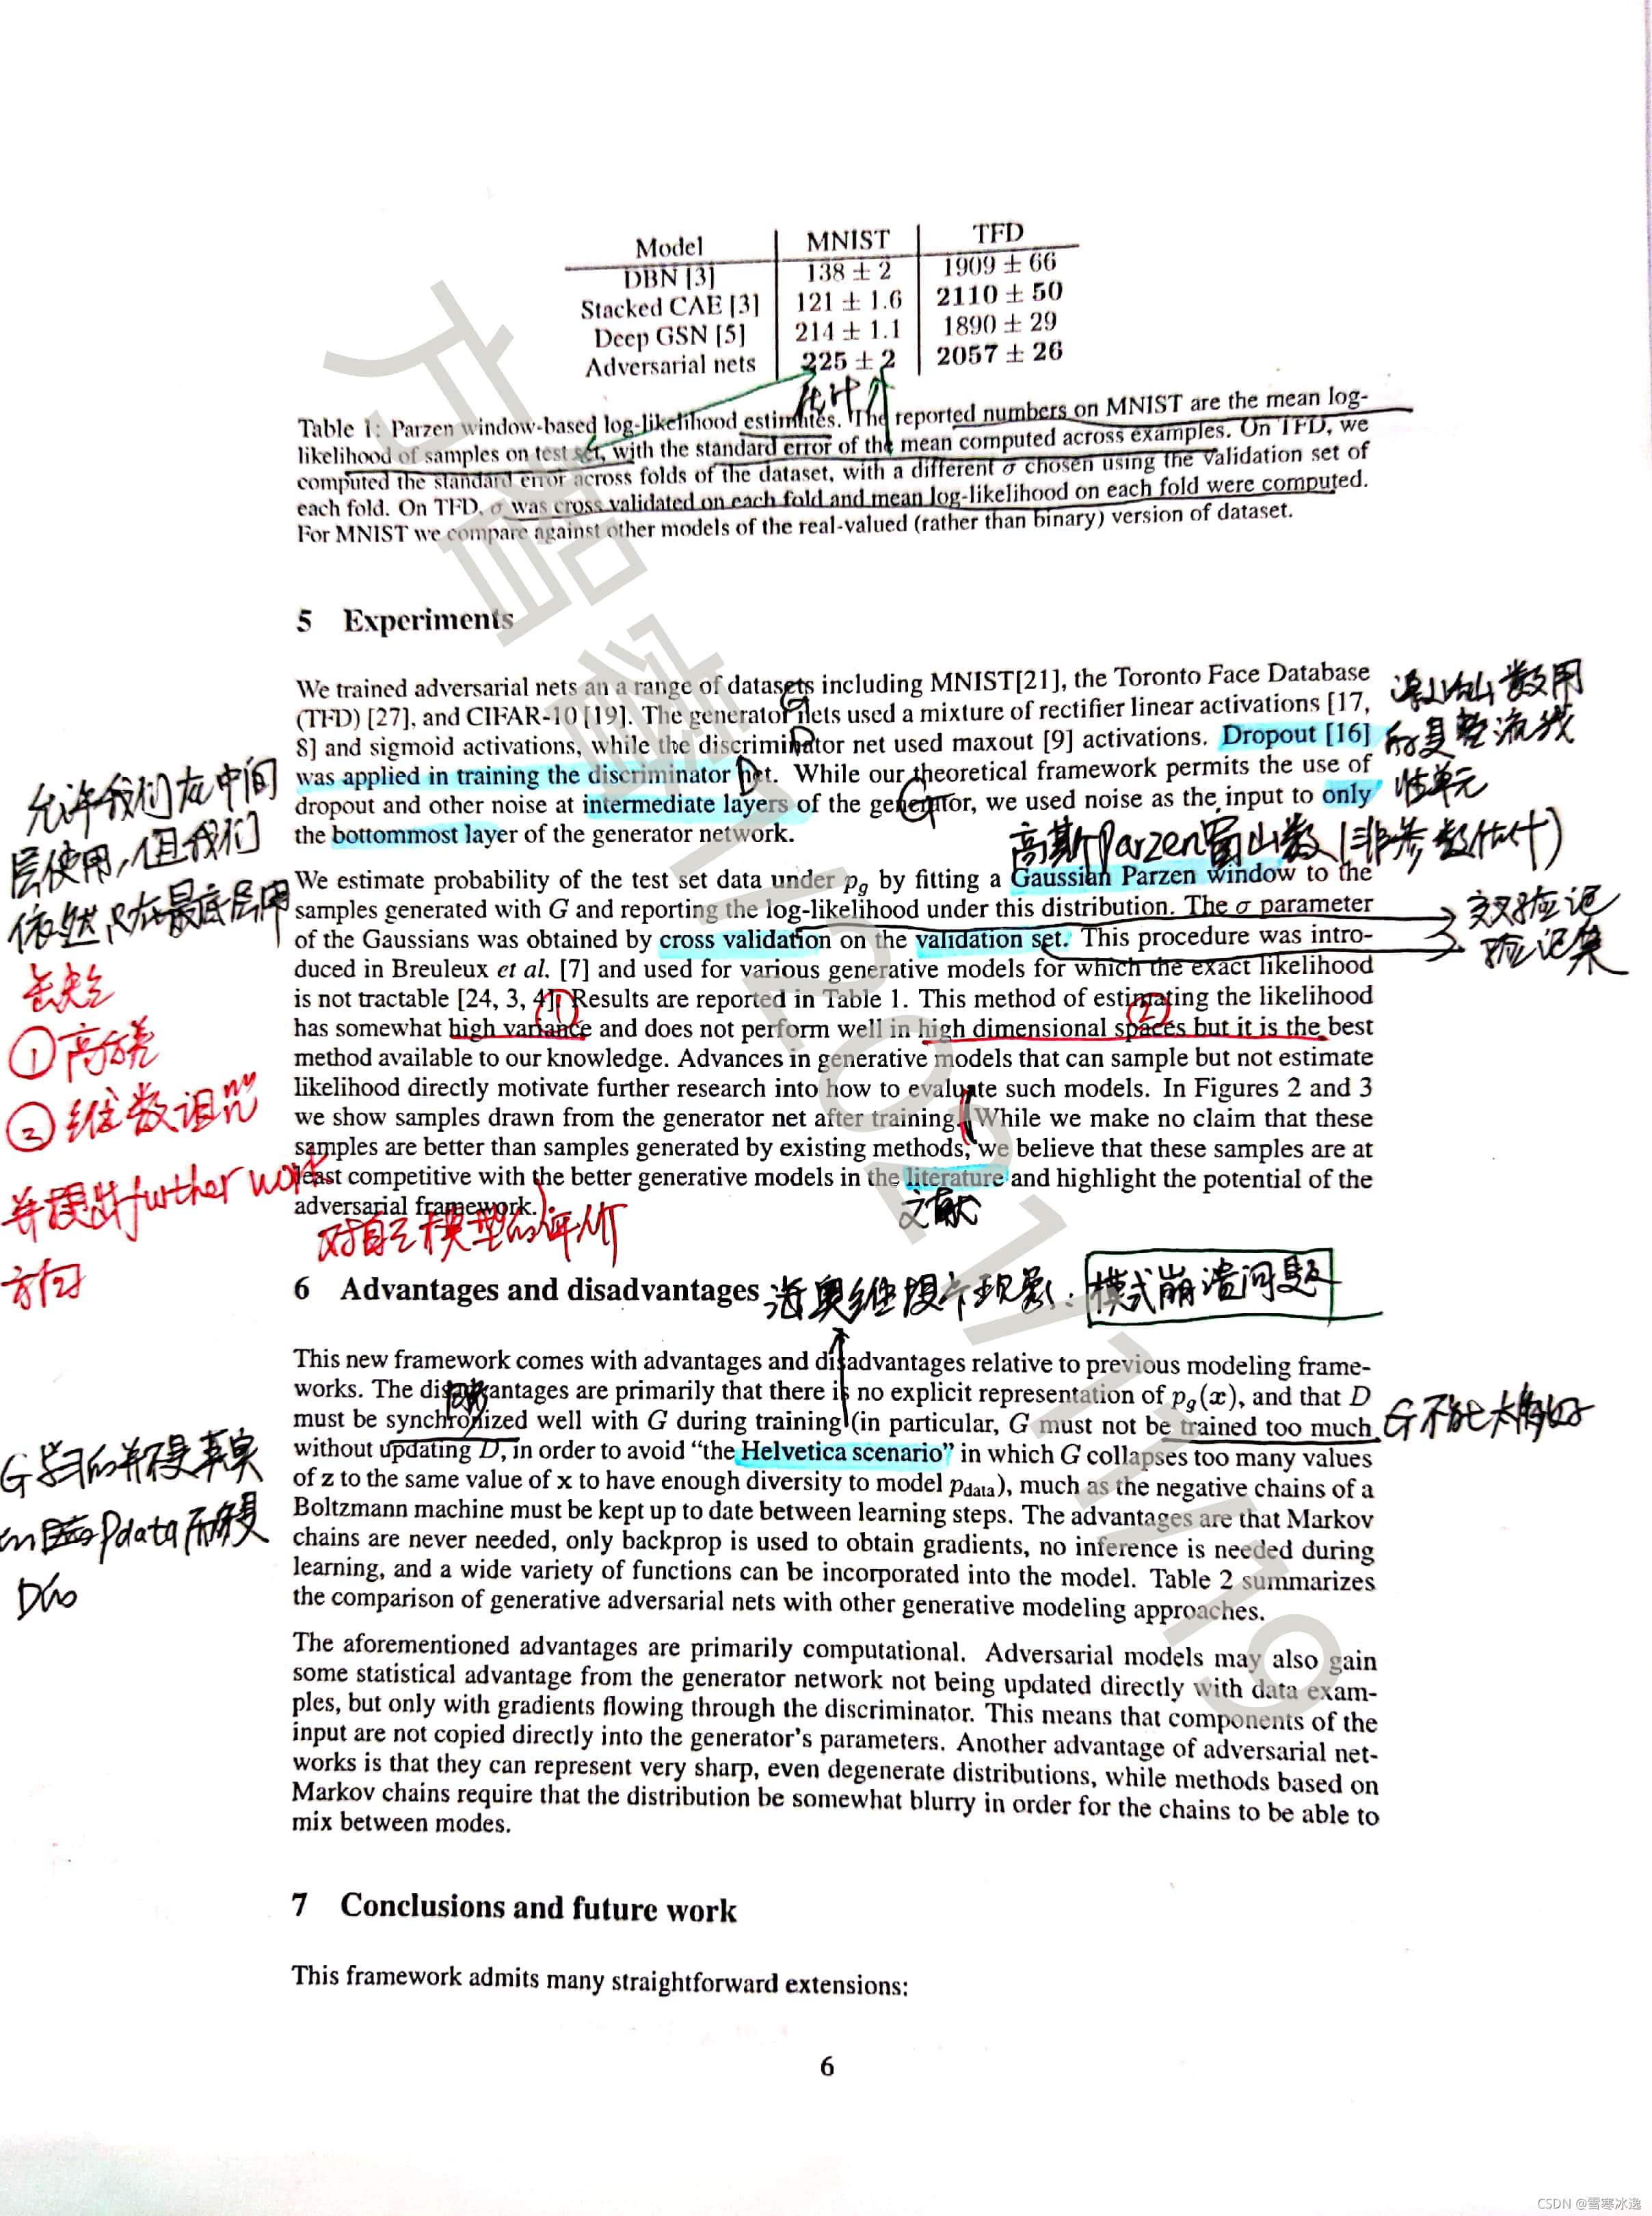 Model MNIST TFD
DBN [3] 138 ± 2 1909 ± 66
Stacked CAE [3] 121 ± 1.6 2110 ± 50
Deep GSN [5] 214 ± 1.1 1890 ± 29
Adversarial nets 225 ± 2 2057 ± 26
估计
Table 1: Parzen window-based log-likelihood estimates. The reported numbers on MNIST are the mean log-
likelihood of samples on test set, with the standard error of the mean computed across examples. On TFD, we
computed the standard error across folds of the dataset, with a different σ chosen using the validation set of
each fold. On TFD, σ was cross validated on each fold and mean log-likelihood on each fold were computed.
For MNIST we compare against other models of the real-valued (rather than binary) version of dataset.
5 Experiments
We trained adversarial nets an a range of datasets including MNIST[21], the Toronto Face Database
(TFD) [27], and CIFAR-10 [19]. The generator nets used a mixture of rectifier linear activations [17,
8] and sigmoid activations, while the discriminator net used maxout [9] activations. Dropout [16]
was applied in training the discriminator net. While our theoretical framework permits the use of
dropout and other noise at intermediate layers of the generator, we used noise as the input to only
the bottommost layer of the generator network.
G
D
D
G
数用
整流线
性单元
允许我们在中间
层使用,但我们
依然只在最底层用
高斯Parzen窗口数(非参数估计)
We estimate probability of the test set data under pg by fitting a Gaussian Parzen window to the
samples generated with G and reporting the log-likelihood under this distribution. The σ parameter
of the Gaussians was obtained by cross validation on the validation set. This procedure was intro-
duced in Breuleux et al. [7] and used for various generative models for which the exact likelihood
is not tractable [24, 3, 4]. Results are reported in Table 1. This method of estimating the likelihood
has somewhat high variance and does not perform well in high dimensional spaces but it is the best
method available to our knowledge. Advances in generative models that can sample but not estimate
likelihood directly motivate further research into how to evaluate such models. In Figures 2 and 3
we show samples drawn from the generator net after training. While we make no claim that these
samples are better than samples generated by existing methods, we believe that these samples are at
least competitive with the better generative models in the literature and highlight the potential of the
adversarial framework.
交叉验证
验证集
①
②
①高方差
②维数诅咒
并提出further work
方向
文献
对自己模型的评价
6 Advantages and disadvantages
海奥维提卡现象: 模式崩溃问题
This new framework comes with advantages and disadvantages relative to previous modeling frame-
works. The disadvantages are primarily that there is no explicit representation of pg(x), and that D
must be synchronized well with G during training (in particular, G must not be trained too much
without updating D, in order to avoid “the Helvetica scenario” in which G collapses too many values
of z to the same value of x to have enough diversity to model pdata), much as the negative chains of a
Boltzmann machine must be kept up to date between learning steps. The advantages are that Markov
chains are never needed, only backprop is used to obtain gradients, no inference is needed during
learning, and a wide variety of functions can be incorporated into the model. Table 2 summarizes
the comparison of generative adversarial nets with other generative modeling approaches.
同步
G不能太好
G学习的并不是真实
Pdata而是
D的
The aforementioned advantages are primarily computational. Adversarial models may also gain
some statistical advantage from the generator network not being updated directly with data exam-
ples, but only with gradients flowing through the discriminator. This means that components of the
input are not copied directly into the generator’s parameters. Another advantage of adversarial net-
works is that they can represent very sharp, even degenerate distributions, while methods based on
Markov chains require that the distribution be somewhat blurry in order for the chains to be able to
mix between modes.
7 Conclusions and future work
This framework admits many straightforward extensions:
6
卢君睿1/2021/11/19
CSDN @雪寒冰逸